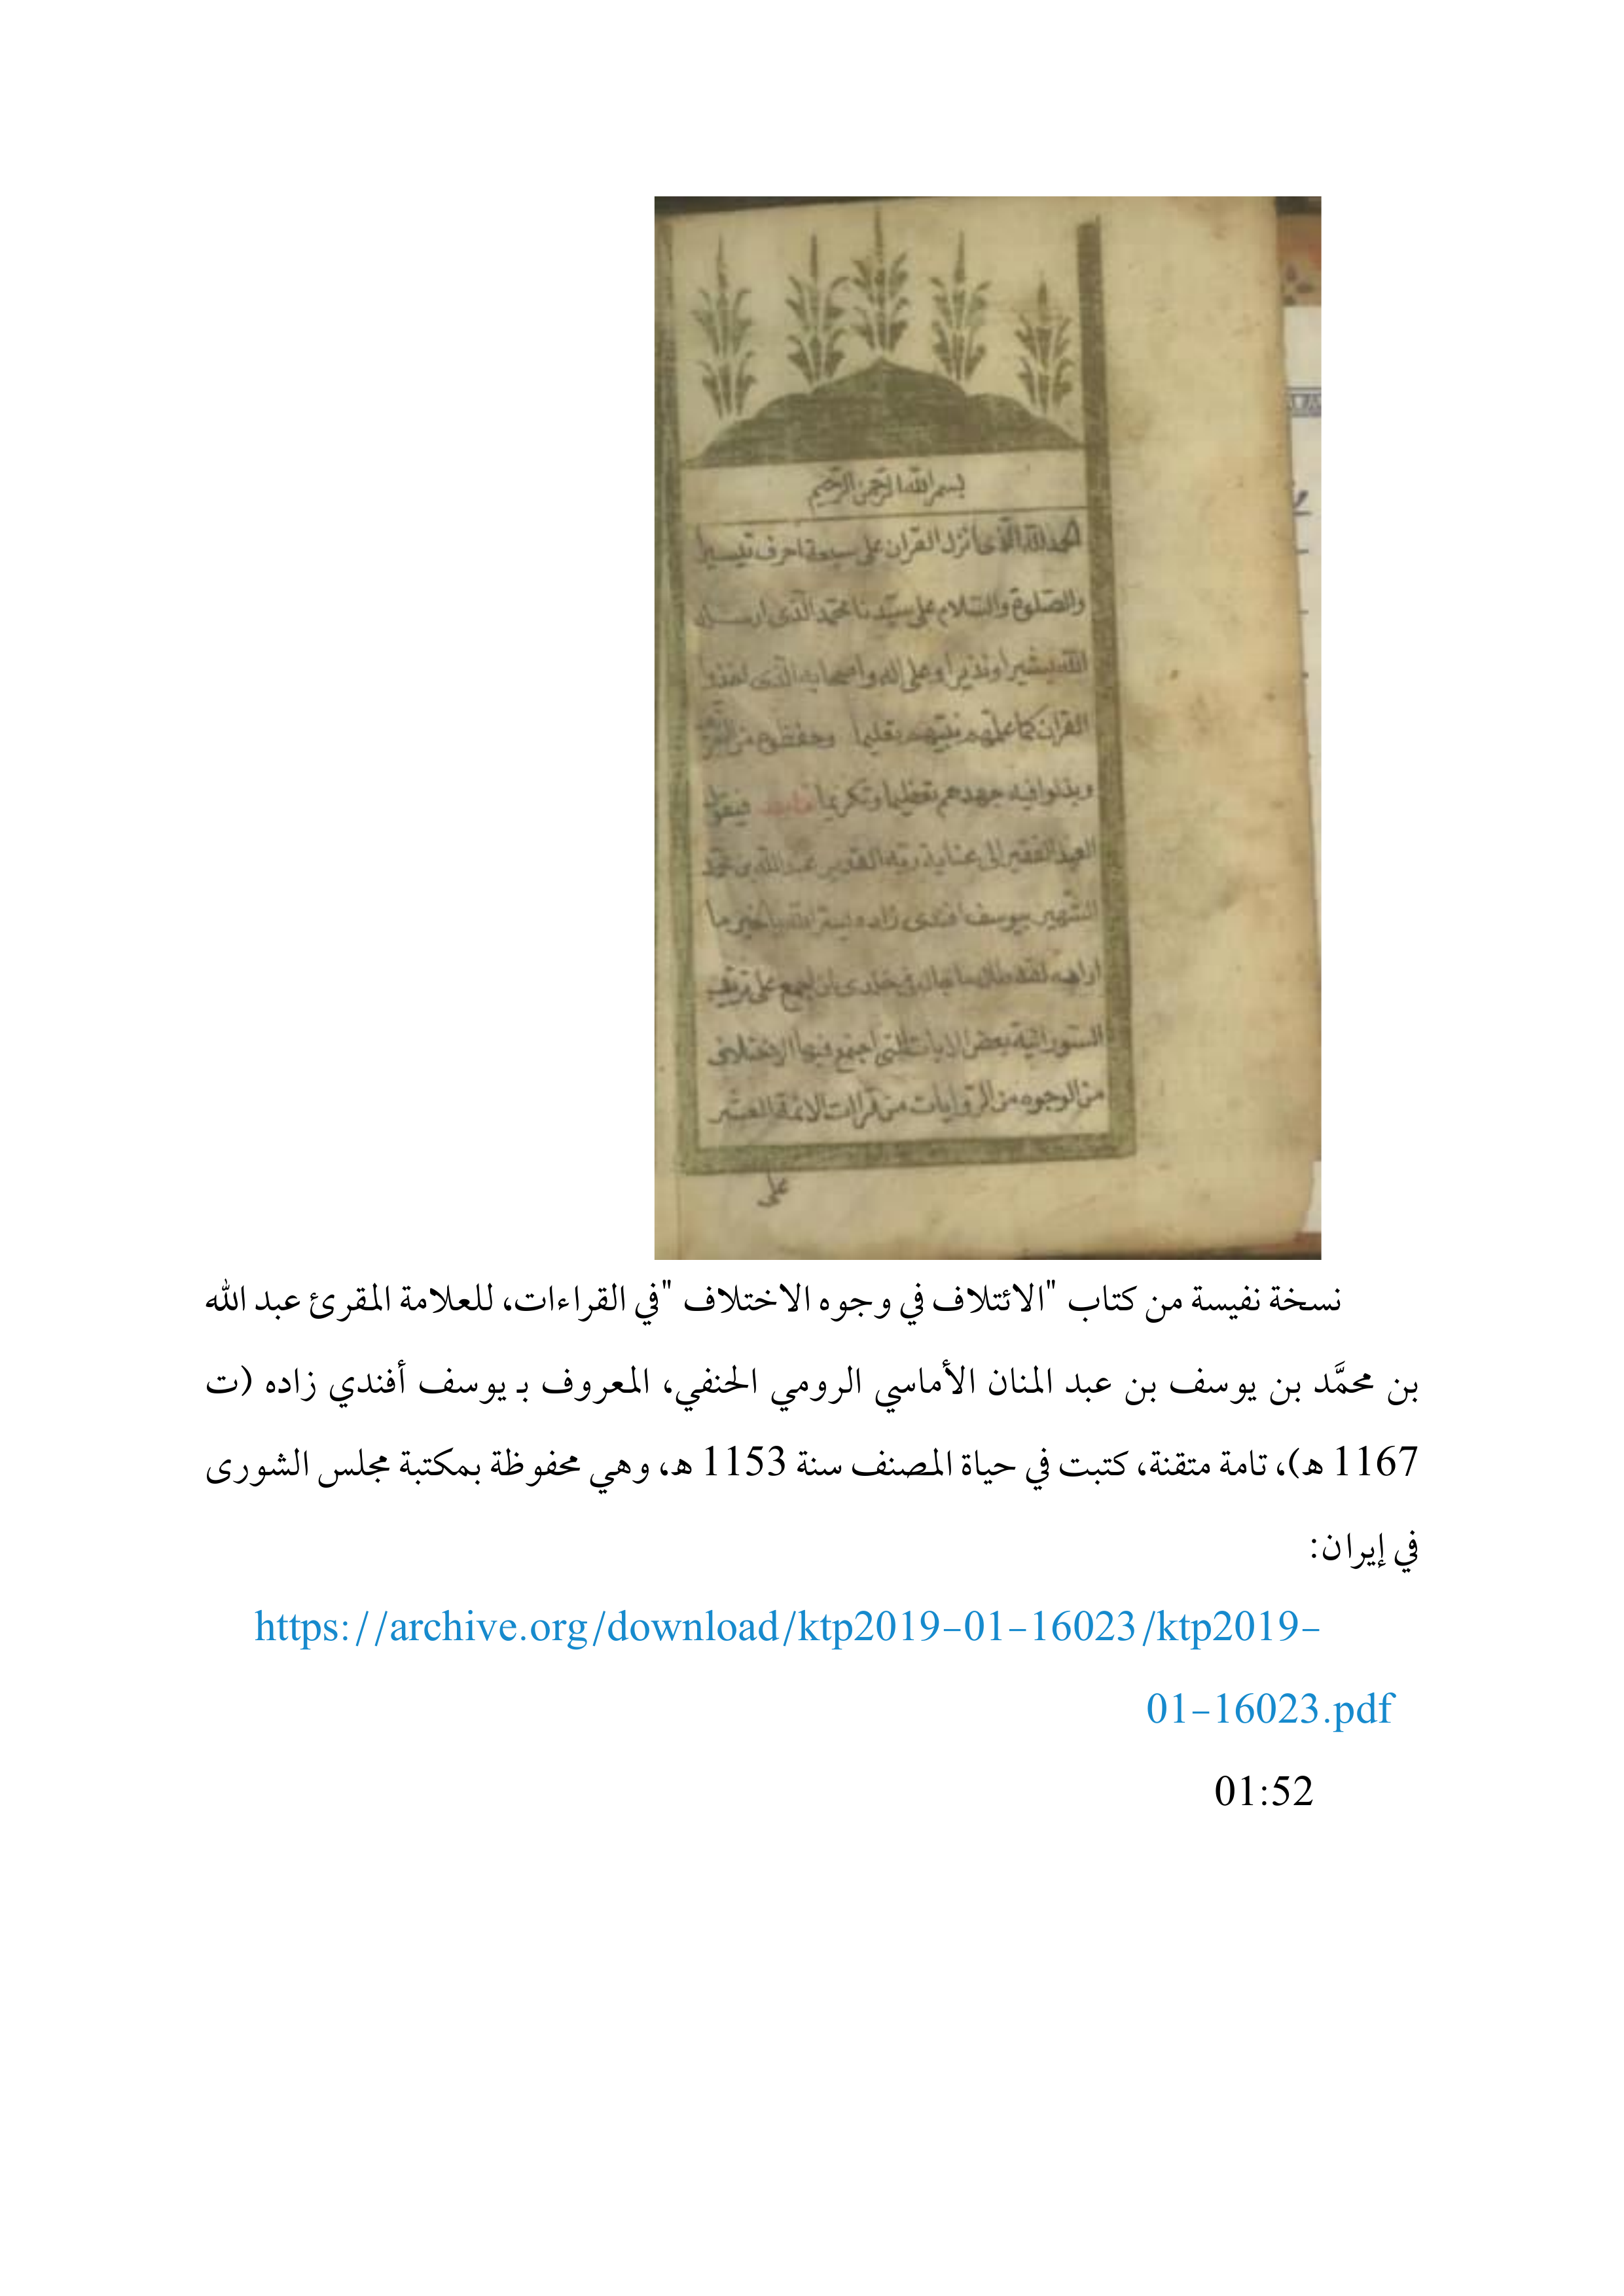 بسم الله الرحمن الرحيم
الحمد لله الذى انزل القران على سبعة احرف تيسيرا
والصلوة والسلام على سيدنا محمد الذى ارسله
الله بشيرا ونذيرا وعلى اله واصحابه الذى اخذوا
القران كما علمهم نبيهم تعليما وحفظوه من
وبذلوا فيه جهدهم تعظيما وتكريما فيقول
العبد الفقير الى عناية ربه القدير عبد الله بن محمد
الشهير بيوسف افندى زاده
لقد طال ما جال فى خلدى ان اجمع على ترتيب
السور القرانية بعض الايات التى اجتمع فيها الاختلاف
من الوجوه من الروايات من قراات الائمة العشر
على
نسخة نفيسة من كتاب "الائتلاف في وجوه الاختلاف "في القراءات، للعلامة المقرئ عبد الله
بن محمَّد بن يوسف بن عبد المنان الأماسي الرومي الحنفي، المعروف بـ يوسف أفندي زاده (ت
1167 هـ)، تامة متقنة، كتبت في حياة المصنف سنة 1153 هـ، وهي محفوظة بمكتبة مجلس الشورى
في إيران:
https://archive.org/download/ktp2019-01-16023/ktp2019-
01-16023.pdf
01:52